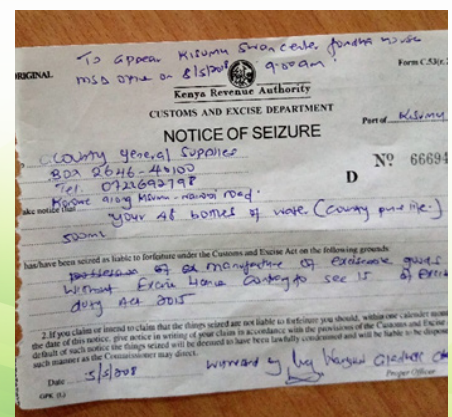 To appear Kisumu Swan Center fondha house
ORIGINAL
MSD Office on 8/5/2018 9.00am
Form C.53(r.
Kenya Revenue Authority
CUSTOMS AND EXCISE DEPARTMENT
NOTICE OF SEIZURE
Port of Kisumu
County General Supplies
BOX 2646-40100
Tel. 0722692798
Nº 66694
D
along Kisumu - Nairobi road.
take notice that your 48 bottles of water (County pure life.)
500ml
has/have been seized as liable to forfeiture under the Customs and Excise Act on the following grounds:
of manufacture of exciseable goods
without Excise licence contrary to sec 15 of Excise
duty Act 2015
2.If you claim or intend to claim that the things seized are not liable to forfeiture you should, within one calender month
the date of this notice, give notice in writing of your claim in accordance with the provisions of the Customs and Excise
default of such notice the things seized will be deemed to have been lawfully condemned and will be liable to be dispose
such manner as the Commissioner may direct.
Date 3/5/2018
Proper Officer